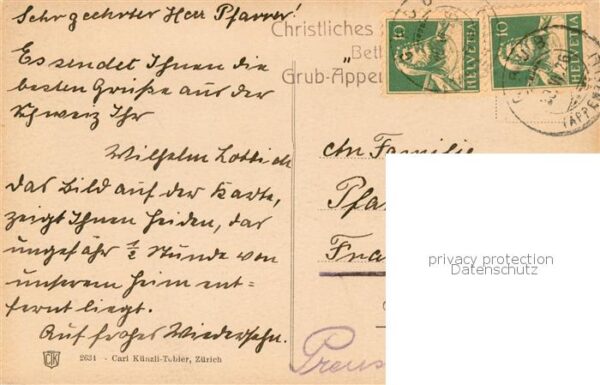 Sehr geehrter Herr Pfarrer!
Es sendet Ihnen die
besten Grüße aus der
Schweiz Ihr
Wilhelm
das Bild auf der Karte,
zeigt Ihnen Heiden, das
ungefähr ½ Stunde von
unserem Heim ent=
fernt liegt.
Auf frohes Wiedersehn.
CKT 2631 - Carl Künzli-Tobler, Zürich
Christliches
"Bet
Grub-Appe
10 HELVETIA
10 HELVETIA
GRUB
(APPENZ
An Familie
Pfa
Fra
Preus
privacy protection
Datenschutz